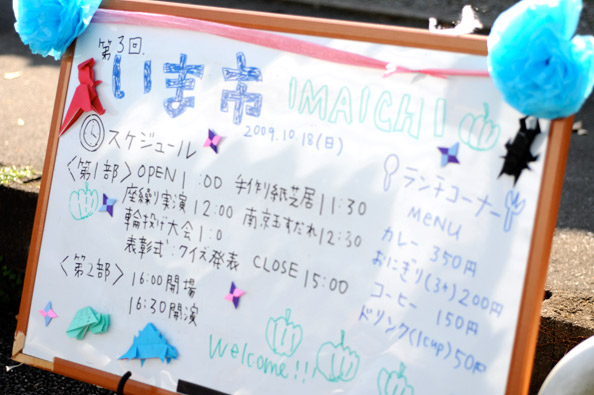 第3回.
いま市
IMAICHI
2009.10.18(日)
スケジュール
〈第1部〉OPEN 1 :00 手作り紙芝居11:30
座繰り実演12:00 南京玉すだれ12:30
輪投げ大会1:0
表彰式:クイズ発表 CLOSE 15:00
〈第2部〉16:00開場
16:30開演
ランチコーナー
MENU
カレー 350円
おにぎり(3ヶ)200円
コーヒー 150円
ドリンク(1cup)50円
Welcome!!